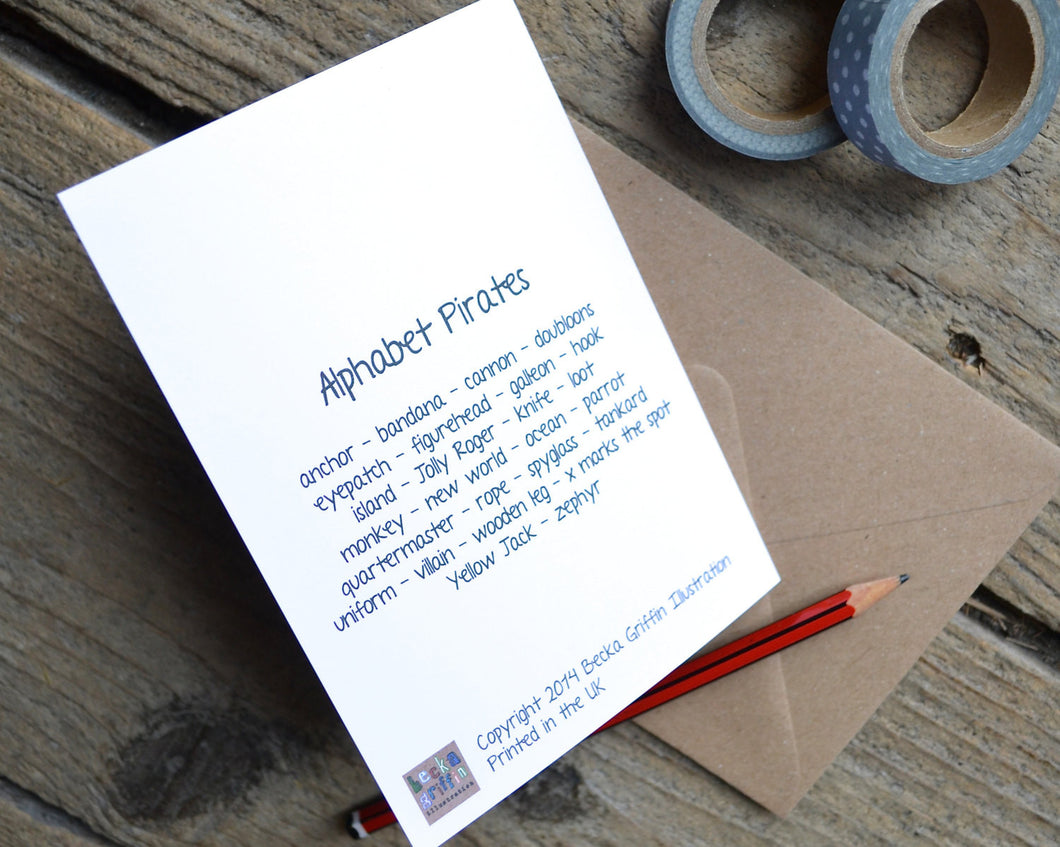 Alphabet Pirates
anchor - bandana - cannon - doubloons
eyepatch - figurehead - galleon - hook
island - Jolly Roger - knife - loot
monkey - new world - ocean - parrot
quartermaster - rope - spyglass - tankard
uniform - villain - wooden leg - x marks the spot
Yellow Jack - zephyr
Copyright 2014 Becka Griffin Illustration
Printed in the UK
becka
griffin
illustration